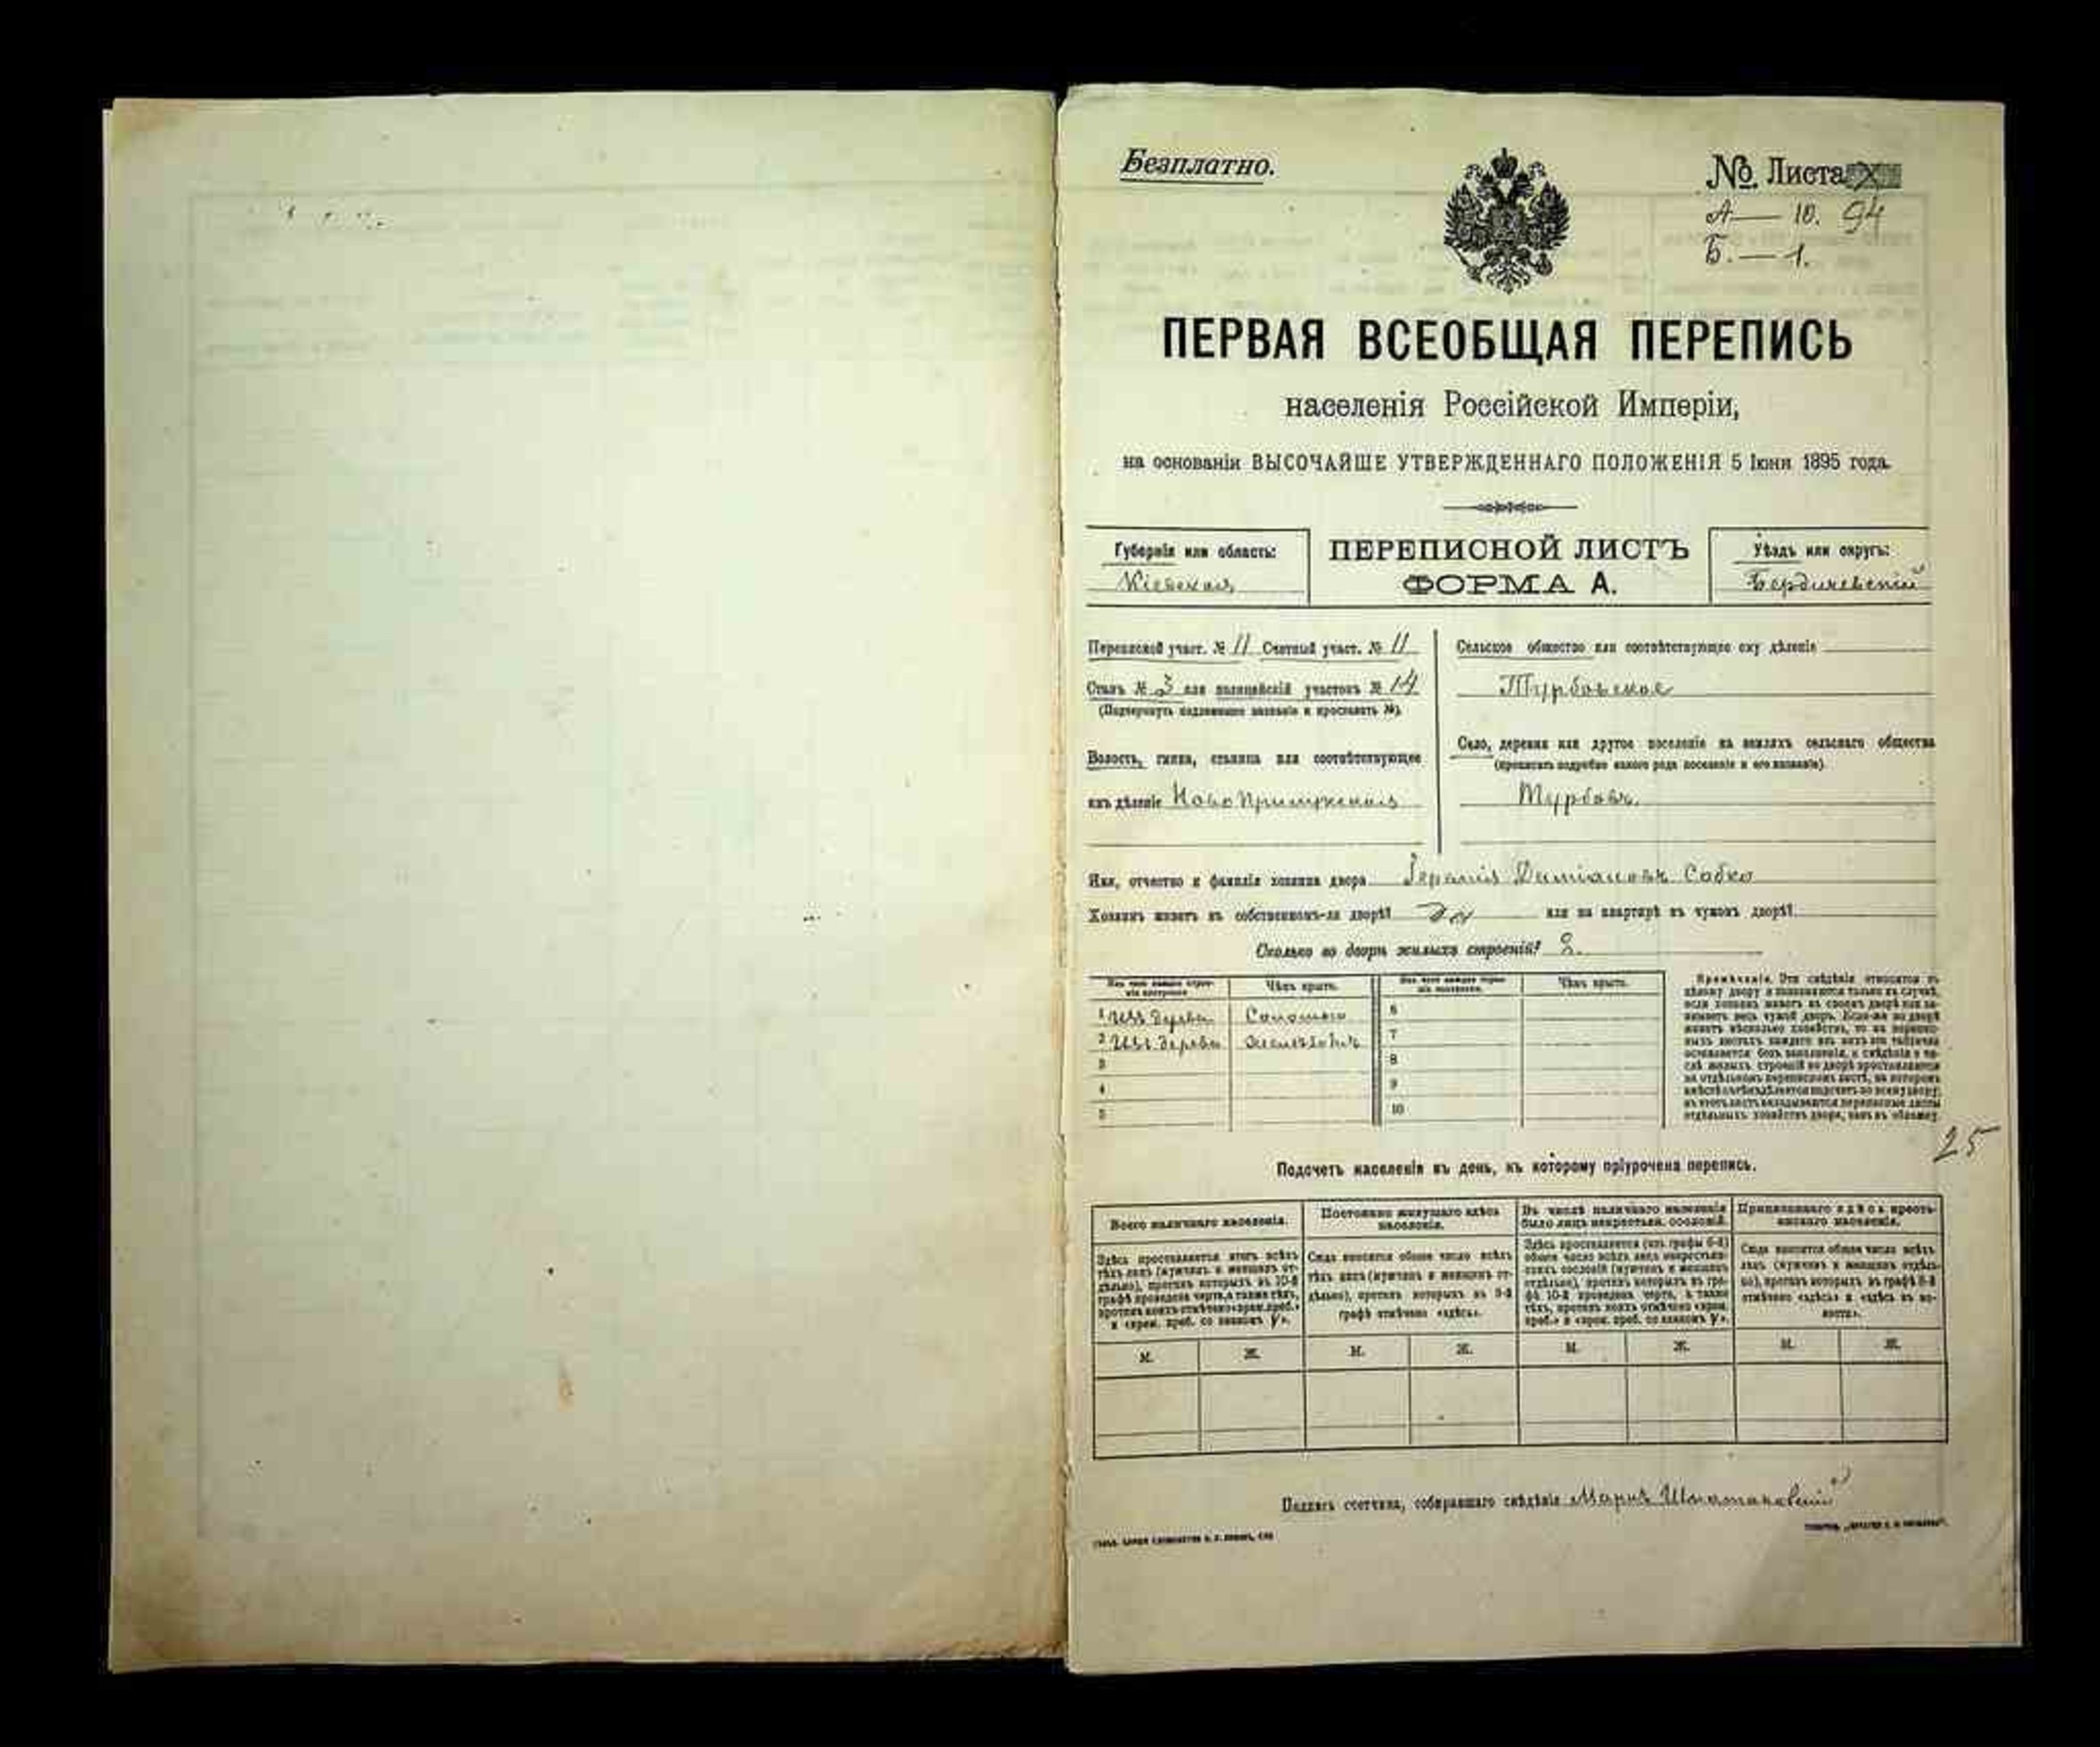 Безплатно.
№ Листа
А — 10. 94
Б. — 1.
ПЕРВАЯ ВСЕОБЩАЯ ПЕРЕПИСЬ
населенія Россійской Имперіи,
на основаніи ВЫСОЧАЙШЕ УТВЕРЖДЕННАГО ПОЛОЖЕНІЯ 5 Іюня 1895 года.
Губернія или область:
Кіевская
ПЕРЕПИСНОЙ ЛИСТЪ
ФОРМА А.
Уѣздъ или округъ:
Бердичевскій
Переписной участ. № 11 Счетный участ. № 11
Станъ № 3 или полицейскій участокъ № 14
(Подчеркнуть подлежащее названіе и проставить №).
Волость, гмина, станица или соотвѣтствующее
имъ дѣленіе Ново Прилукская
Сельское общество или соотвѣтствующее ему дѣленіе
Турбовское
Село, деревня или другое поселеніе на земляхъ сельскаго общества
(прописать подробно какого рода поселеніе и его названіе).
Турбовъ.
Имя, отчество и фамилія хозяина двора Даміановъ Собко
Хозяинъ живетъ въ собственномъ-ли дворѣ? да или на квартирѣ въ чужомъ дворѣ?
Сколько во дворѣ жилыхъ строеній? 2.
Изъ чего каждое строеніе построено
Чѣмъ крыто.
Изъ чего каждое строеніе построено.
Чѣмъ крыто.
1 Изъ дерева Соломою 6
2 Изъ дерева желѣзомъ 7
3 8
4 9
5 10
Примѣчаніе. Эти свѣдѣнія относятся къ
цѣлому двору и заполняются только въ случаѣ,
если хозяинъ живетъ въ своемъ дворѣ или за-
нимаетъ весь чужой дворъ. Если-же во дворѣ
живетъ нѣсколько хозяйствъ, то на перепис-
ныхъ листахъ каждаго изъ нихъ эта табличка
оставляется безъ заполненія, а свѣдѣнія о чи-
слѣ жилыхъ строеній во дворѣ проставляются
на отдѣльномъ переписномъ листѣ, на которомъ
вмѣстѣ съ тѣмъ дѣлается подсчетъ по всему двору;
въ этотъ листъ вкладываются переписные листы
отдѣльныхъ хозяйствъ двора, какъ въ обложку.
25
Подсчетъ населенія въ день, къ которому пріурочена перепись.
Всего наличнаго населенія.
Постоянно живущаго здѣсь
населенія.
Въ числѣ наличнаго населенія
было лицъ некрестьян. сословій.
Приписаннаго здѣсь кресть-
янскаго населенія.
Здѣсь проставляется итогъ всѣхъ
тѣхъ лицъ (мужчинъ и женщинъ от-
дѣльно), противъ которыхъ въ 10-й
графѣ проведена черта, а также тѣхъ,
противъ коихъ отмѣчено «врем. преб.»
и «врем. преб. со знакомъ V».
Сюда вносится общее число всѣхъ
тѣхъ лицъ (мужчинъ и женщинъ от-
дѣльно), противъ которыхъ въ 9-й
графѣ отмѣчено «здѣсь».
Здѣсь проставляется (изъ графы 6-й)
общее число всѣхъ лицъ некрестьян-
скихъ сословій (мужчинъ и женщинъ
отдѣльно), противъ которыхъ въ гра-
фѣ 10-й проведена черта, а также
тѣхъ, противъ коихъ отмѣчено «врем.
преб.» и «врем. преб. со знакомъ V».
Сюда вносится общее число всѣхъ
лицъ (мужчинъ и женщинъ отдѣль-
но), противъ которыхъ въ графѣ 8-й
отмѣчено «здѣсь» и «здѣсь въ во-
лости».
М. Ж. М. Ж. М. Ж. М. Ж.
Подпись счетчика, собиравшаго свѣдѣнія